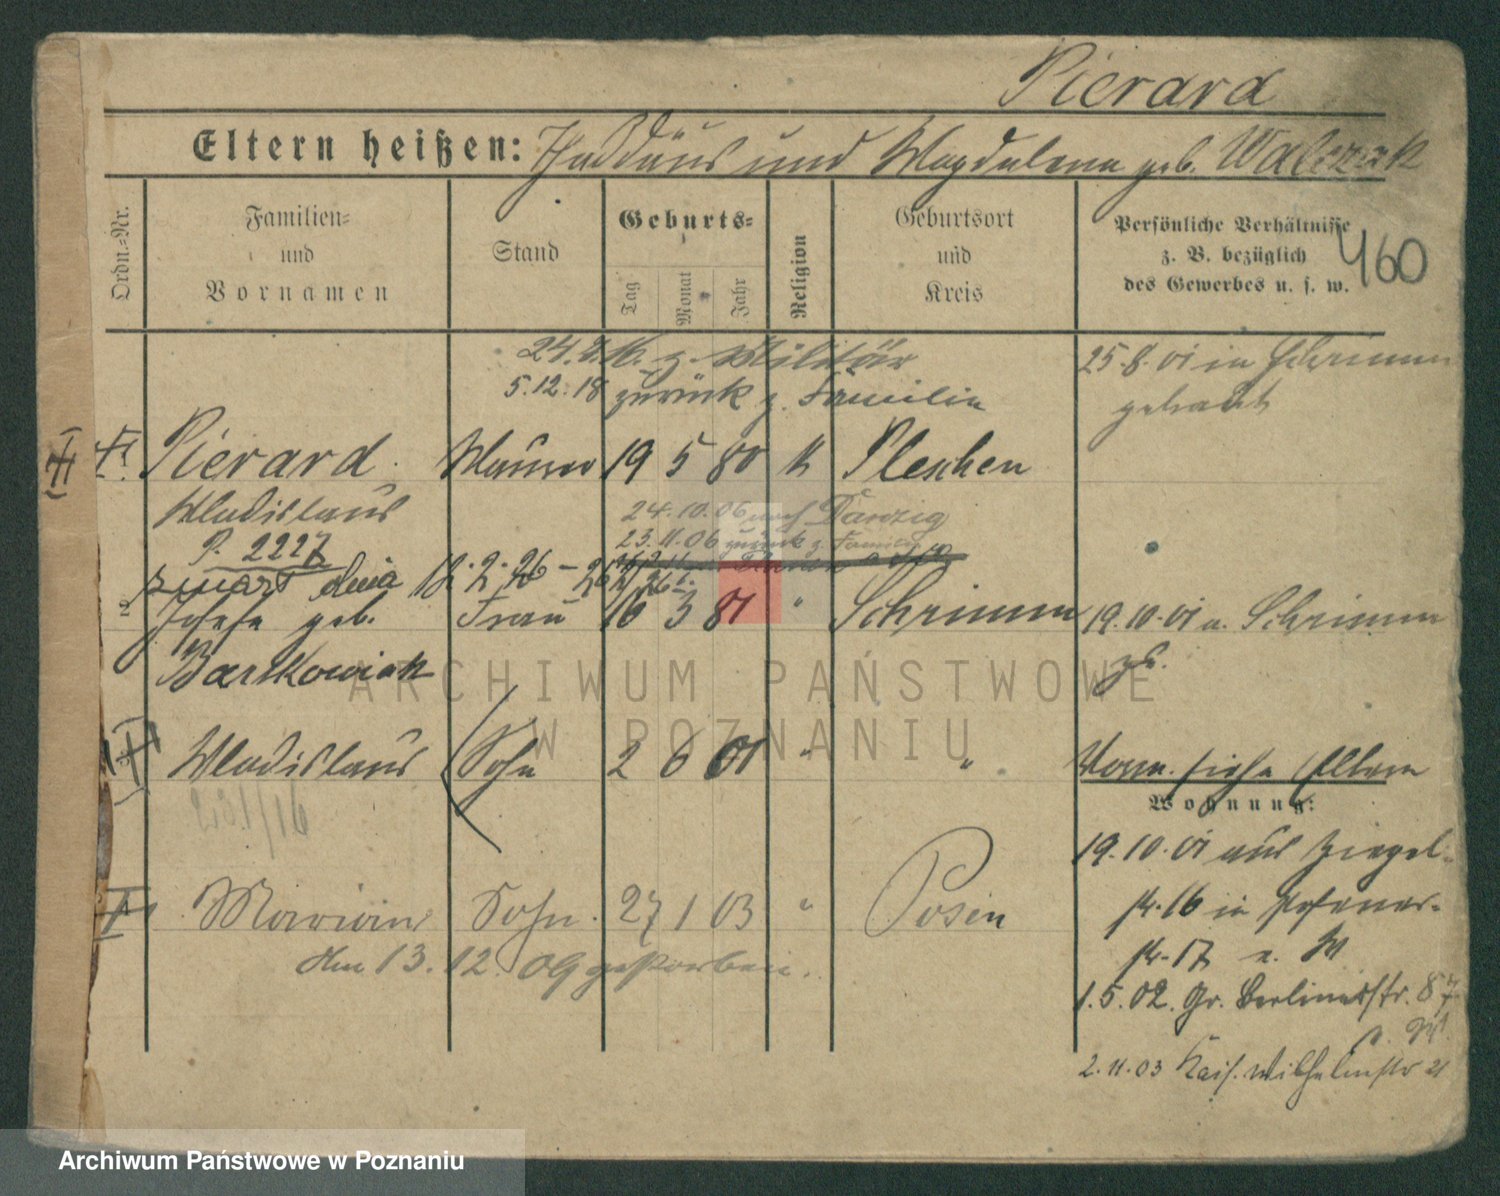 Pierard
Eltern heißen: Thaddäus und Magdalena geb. Walczak
Ordn.-Nr.
Familien-
und
Vornamen
Stand
Geburts-
Tag
Monat
Jahr
Religion
Geburtsort
und
Kreis
Persönliche Verhältnisse
z. B. bezüglich
des Gewerbes u. s. w.
460
z. Militär
5.12.18 zurück z. Familie
25.8.01 in Schrimm
getraut
Pierard Maurer 19 5 80 k Pleschen
Wladislaus
24.10.06 nach Danzig
P. 2227
23.11.06 zurück z. Familie
zmarł dnia 18.2.26
2 Josefa geb. Frau 16 3 81 " Schrimm
19.10.01 v. Schrimm
zg.
Bartkowiak
Wladislaus Sohn 2 6 01 " "
Vorm. siehe Eltern
Wohnung:
19.10.01 aus Ziegel-
str. 16 in Posener-
str. 17
Marian Sohn. 27 1 03 " Posen
Am 13.12.09 gestorben.
1.5.02. Gr. Berlinerstr. 87
2.11.03 Kais. Wilhelmstr 21
ARCHIWUM PAŃSTWOWE
W POZNANIU
Archiwum Państwowe w Poznaniu